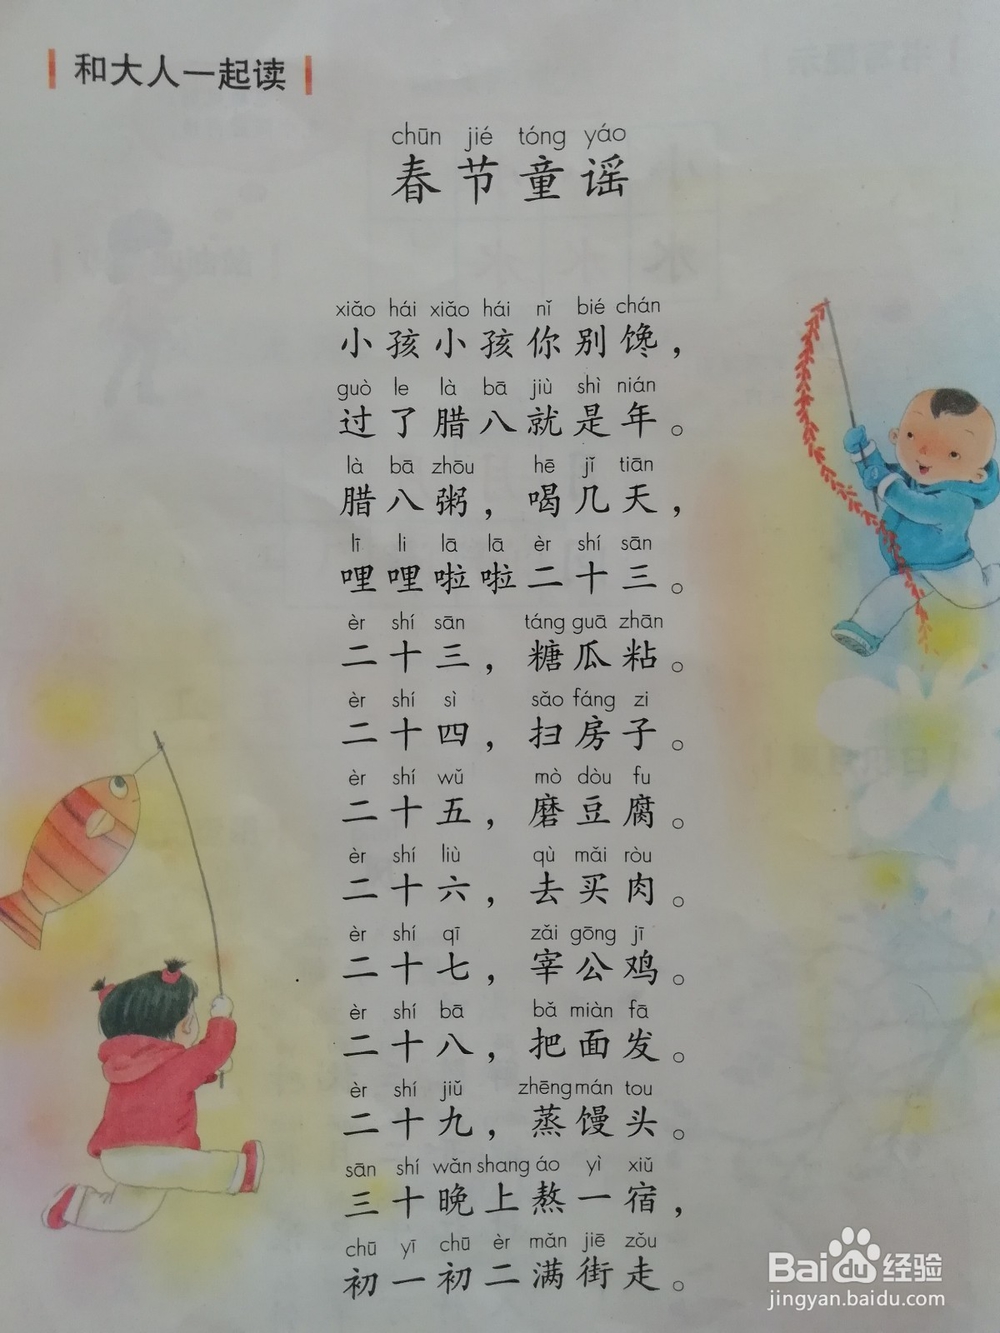 和大人一起读
chūn jié tóng yáo
春节童谣
xiǎo hái xiǎo hái nǐ bié chán
小孩小孩你别馋，
guò le là bā jiù shì nián
过了腊八就是年。
là bā zhōu hē jǐ tiān
腊八粥，喝几天，
lī li lā lā èr shí sān
哩哩啦啦二十三。
èr shí sān táng guā zhān
二十三，糖瓜粘。
èr shí sì sǎo fáng zi
二十四，扫房子。
èr shí wǔ mò dòu fu
二十五，磨豆腐。
èr shí liù qù mǎi ròu
二十六，去买肉。
èr shí qī zǎi gōng jī
二十七，宰公鸡。
èr shí bā bǎ miàn fā
二十八，把面发。
èr shí jiǔ zhēng mán tou
二十九，蒸馒头。
sān shí wǎn shang áo yì xiǔ
三十晚上熬一宿，
chū yī chū èr mǎn jiē zǒu
初一初二满街走。
Baidu经验
jingyan.baidu.com